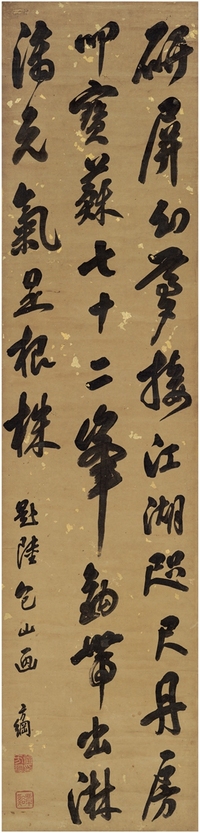 研屏幻夢接江湖咫尺丹房
叩寶蘇七十二峯翻帶出淋
漓元氣是根株 題陸包山画 方綱